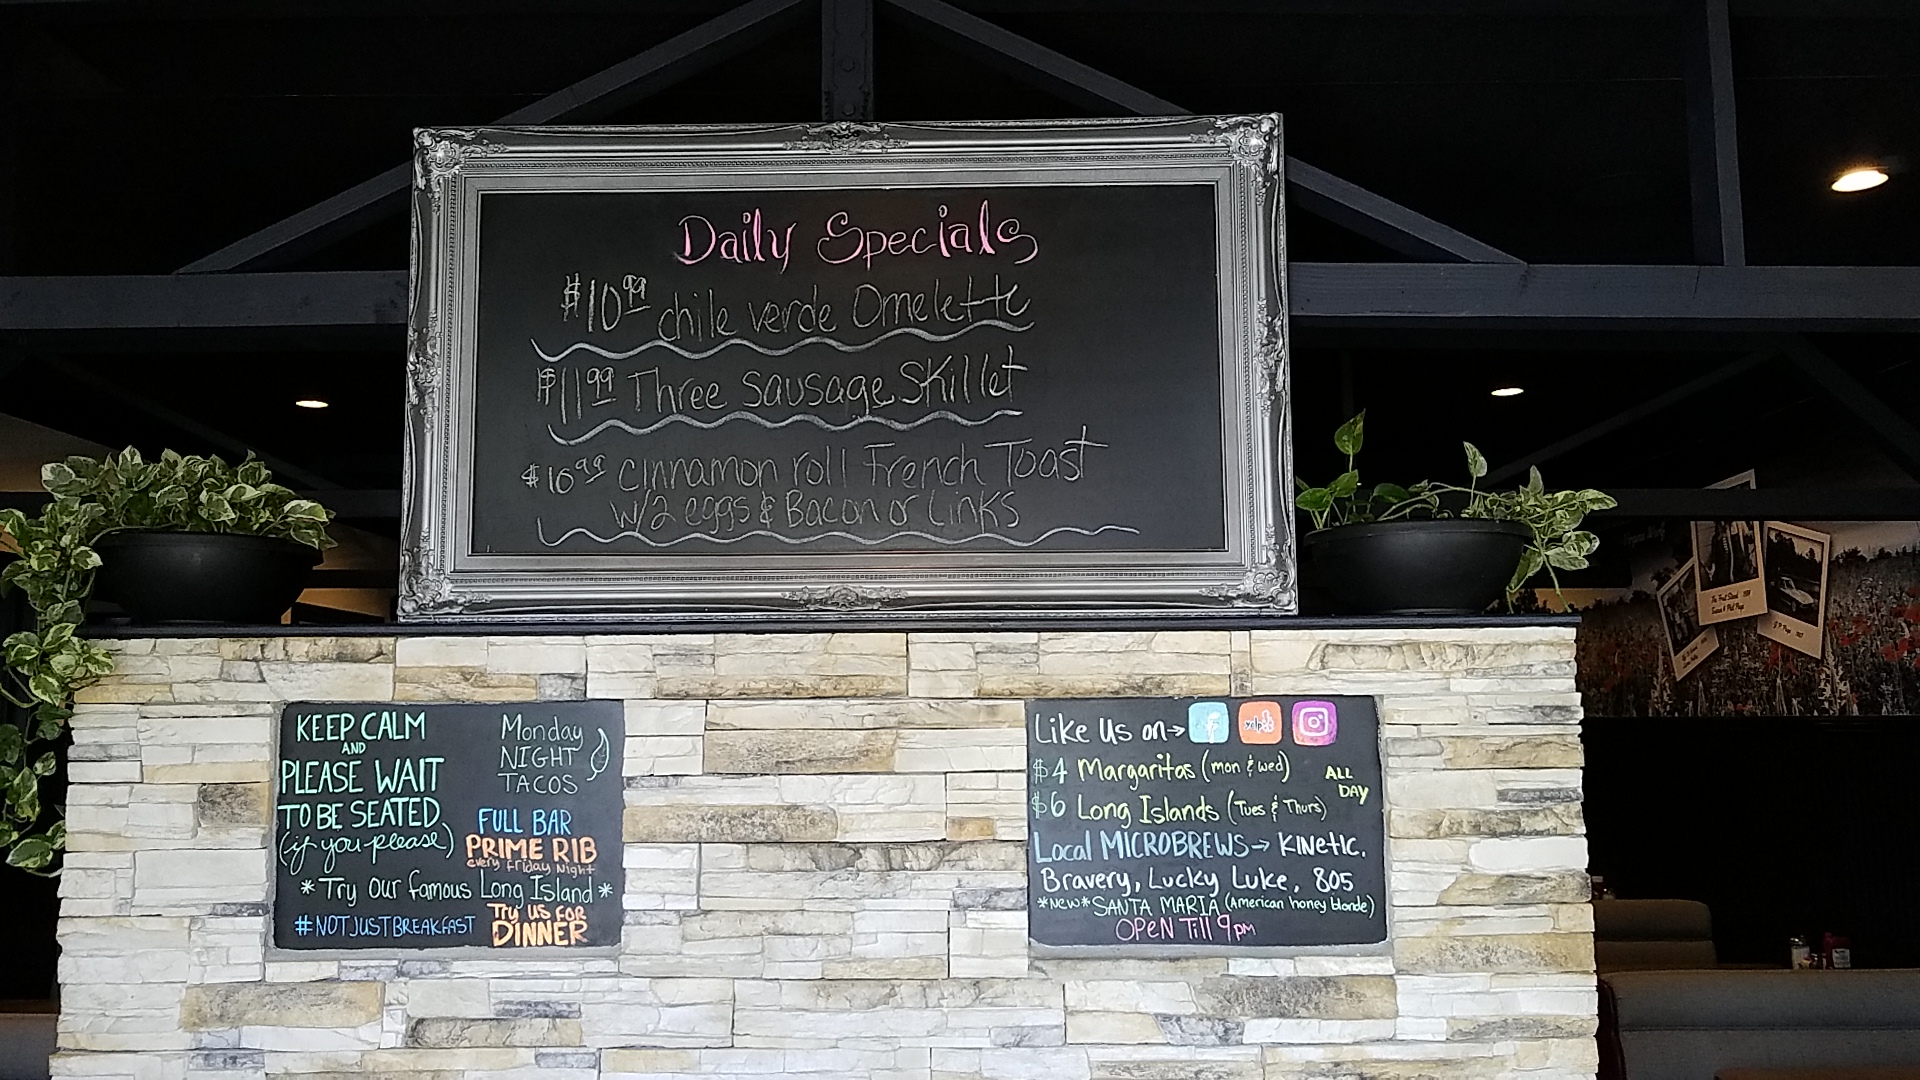 Daily Specials
$10.99 chile verde Omelette
$11.99 Three Sausage Skillet
$10.99 cinnamon roll French Toast
w/2 eggs & Bacon or Links
KEEP CALM
AND
PLEASE WAIT
TO BE SEATED
(if you please)
Monday
NIGHT
TACOS
FULL BAR
PRIME RIB
every Friday Night
*Try our famous Long Island*
#NOTJUSTBREAKFAST
Try us FOR
DINNER
Like Us on→ f yelp
$4 Margaritas (mon & wed)
$6 Long Islands (Tues & Thurs)
ALL
DAY
Local MICROBREWS→ Kinetic,
Bravery, Lucky Luke, 805
*NEW* SANTA MARIA (American honey blonde)
OPEN Till 9pm